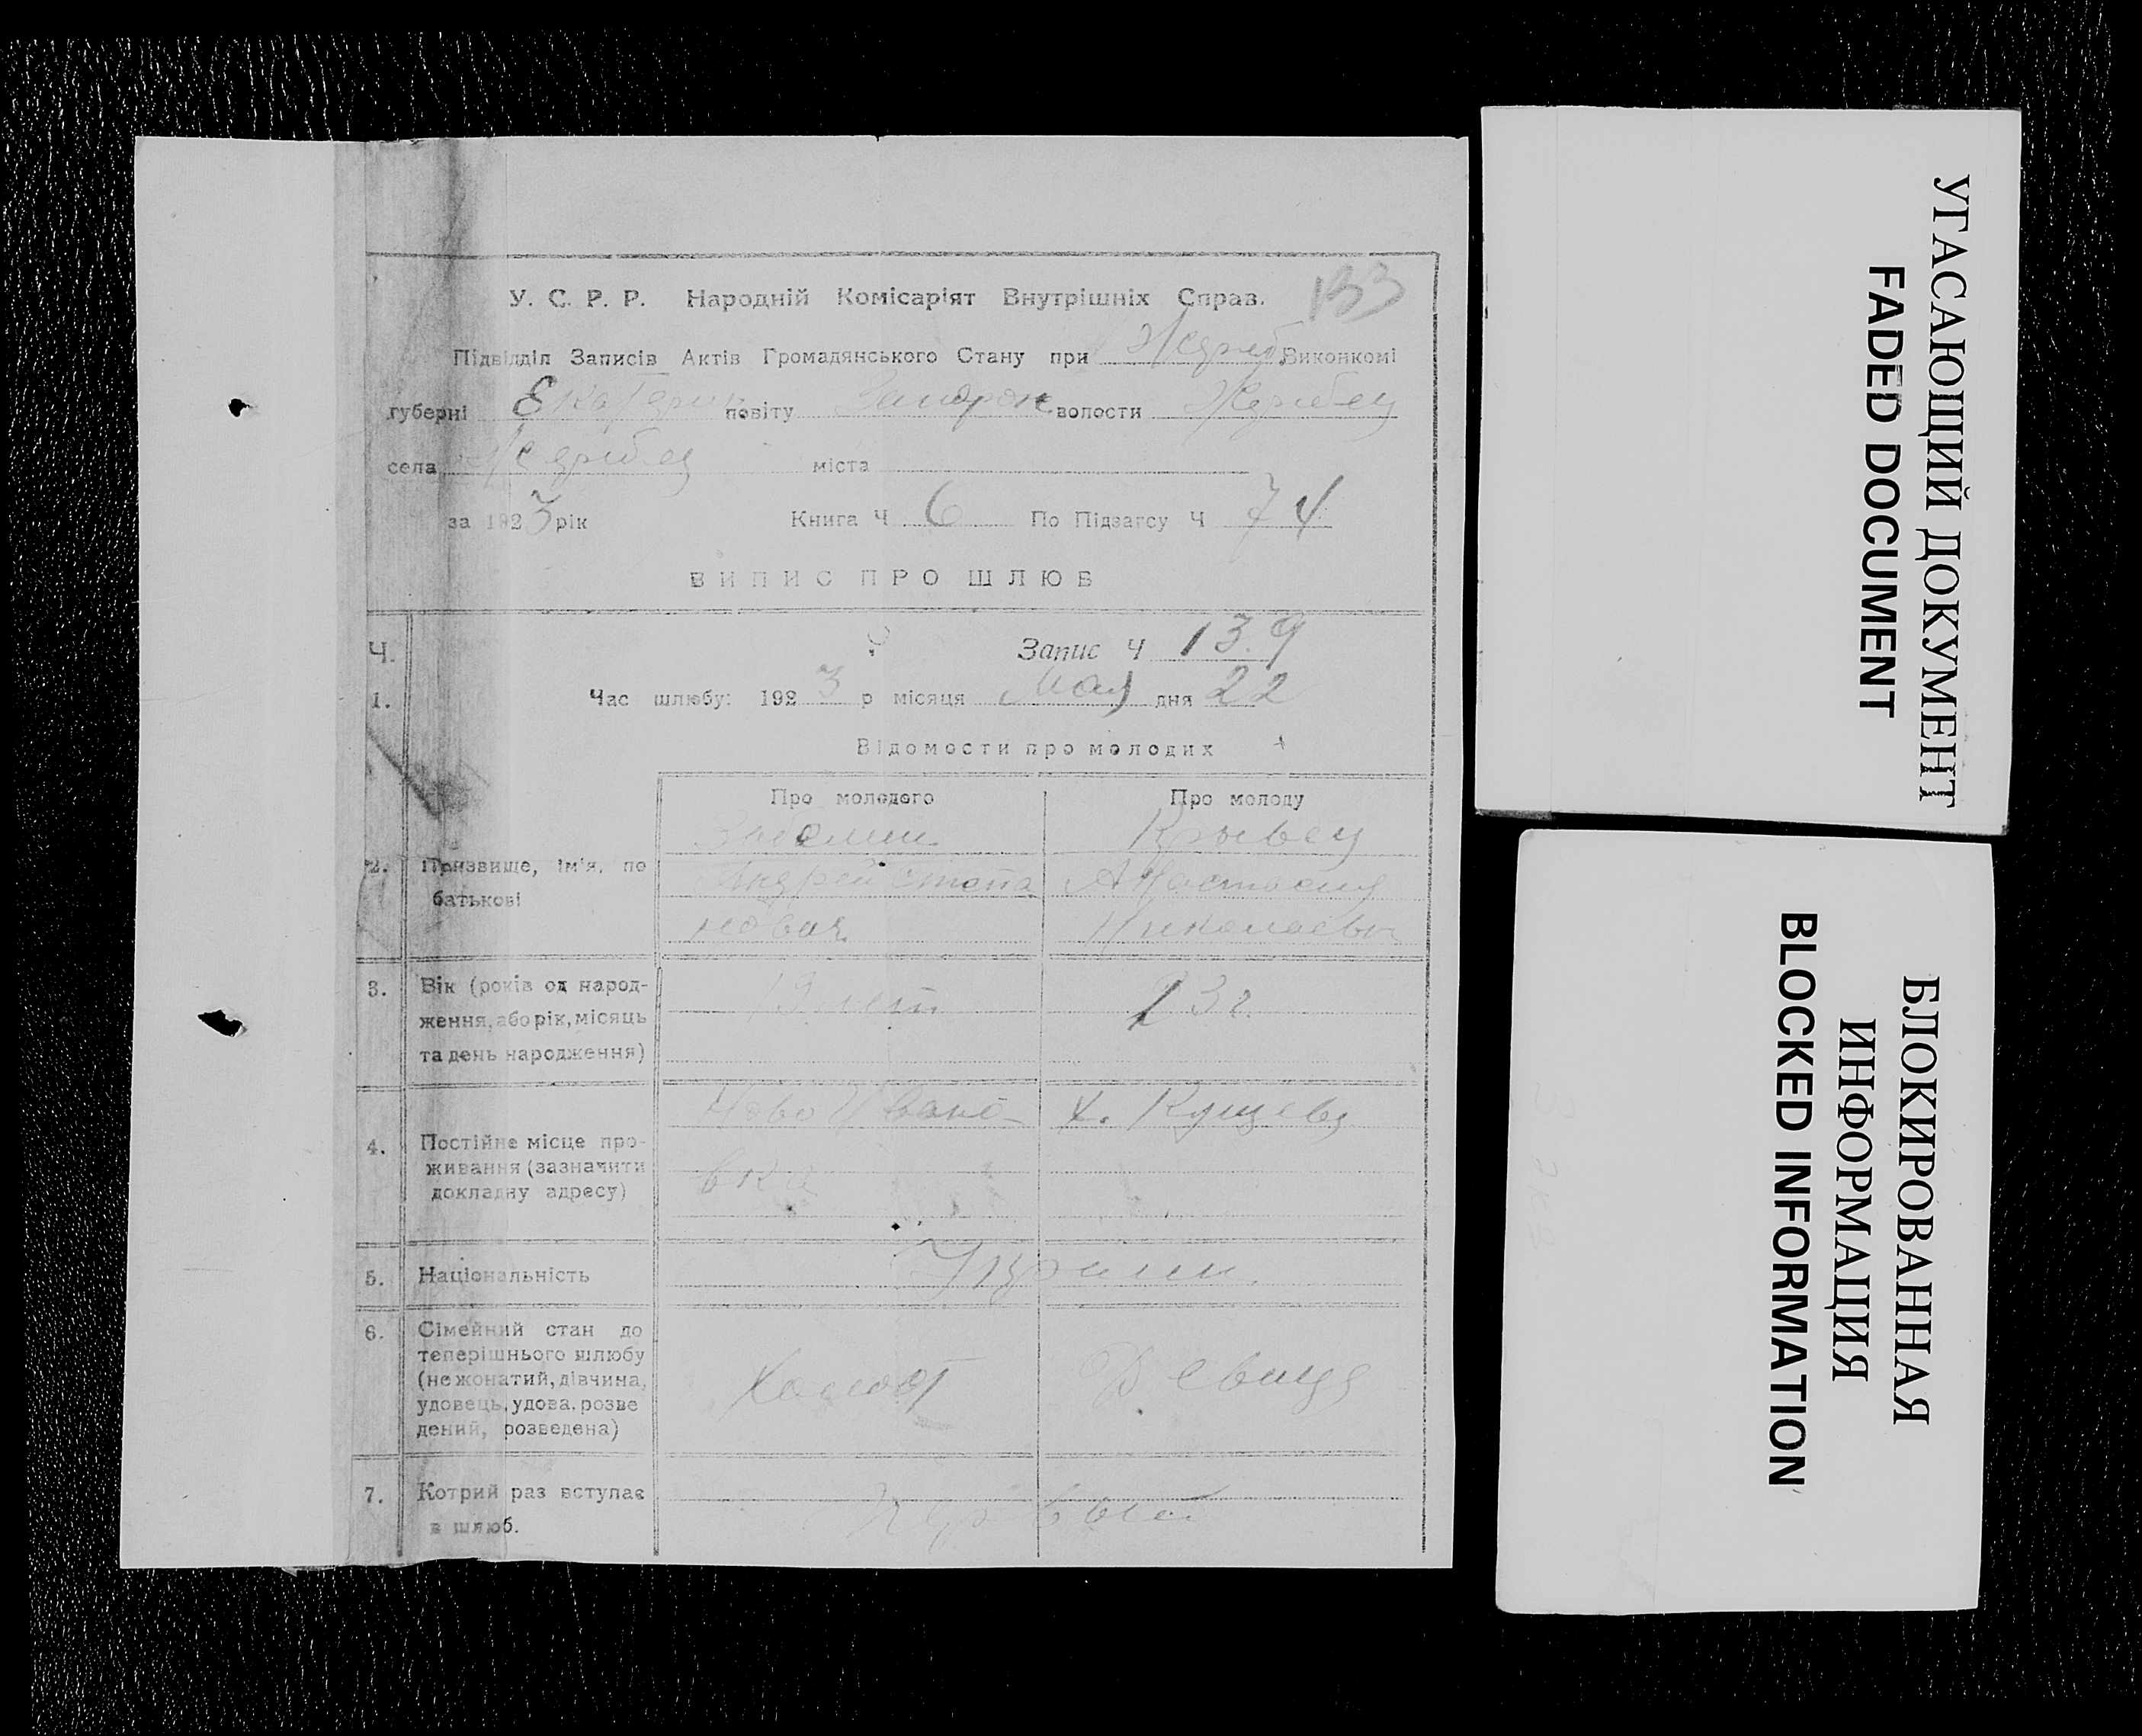 133
У. С. Р. Р. Народній Комісаріят Внутрішніх Справ.
Підвідділ Записів Актів Громадянського Стану при Жереб. Виконкомі
губерні Екатерин повіту Запорож волости Жеребец
села Жеребец міста
за 1923 рік Книга Ч 6 По Підзагсу Ч 74
ВИПИС ПРО ШЛЮБ
Ч. Запис Ч 139
1. Час шлюбу: 1923 р місяця Мая дня 22
Відомости про молодих
Про молодого Про молоду
2. Призвище, ім'я, по батькові
Андрей Степа
нович
Кривец
Анастасия
Николаевн
3. Вік (років од народ-
ження, або рік, місяць
та день народження)
19 лет 23 г.
4. Постійне місце про-
живання (зазначити
докладну адресу)
Ново Ивано-
вка
х. Кущевы
5. Національність Украин.
6. Сімейний стан до
теперішнього шлюбу
(не жонатий, дівчина,
удовець, удова, розве
дений, розведена)
Холост Девица
7. Котрий раз вступає
в шлюб.
Первый
УГАСАЮЩИЙ ДОКУМЕНТ
FADED DOCUMENT
БЛОКИРОВАННАЯ
ИНФОРМАЦИЯ
BLOCKED INFORMATION